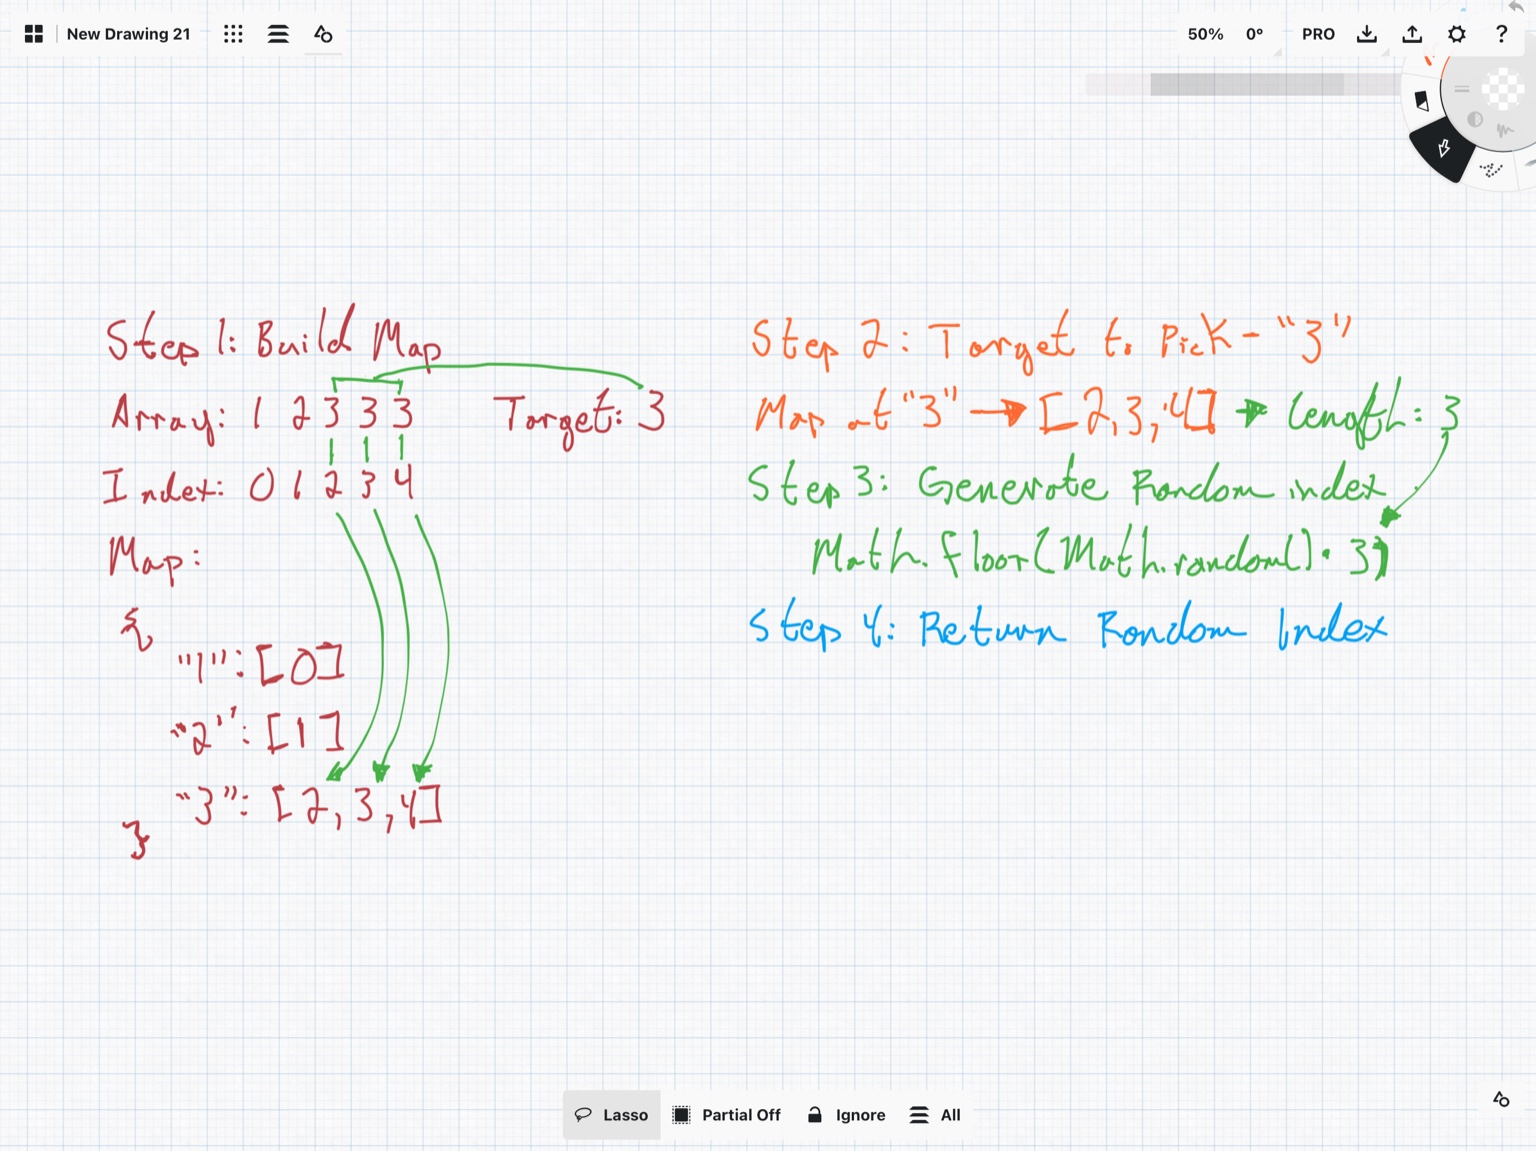 New Drawing 21
50% 0° PRO ?
Step 1: Build Map
Array: 1 2 3 3 3 Target: 3
Index: 0 1 2 3 4
Map:
{
"1": [0]
"2": [1]
"3": [2,3,4]
}
Step 2: Target to Pick - "3"
Map at "3" → [2,3,4] → length: 3
Step 3: Generate Random index
Math.floor(Math.random() · 3)
Step 4: Return Random Index
Lasso Partial Off Ignore All